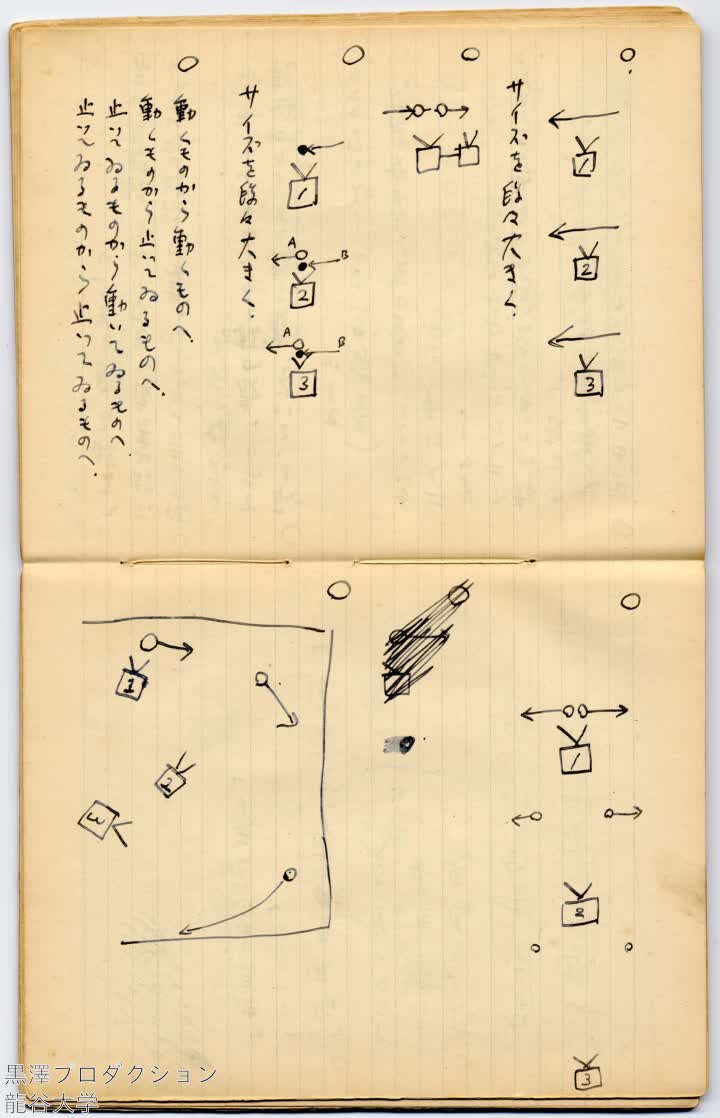 1
2
3
サイズを段々大きく.
1
A
B
2
A
B
3
サイズを段々大きく.
動くものから動くものへ.
動くものから止いてゐるものへ.
止いてゐるものから動いてゐるものへ.
止いてゐるものから止いてゐるものへ.
1
2
3
1
2
3
黒澤プロダクション
龍谷大学